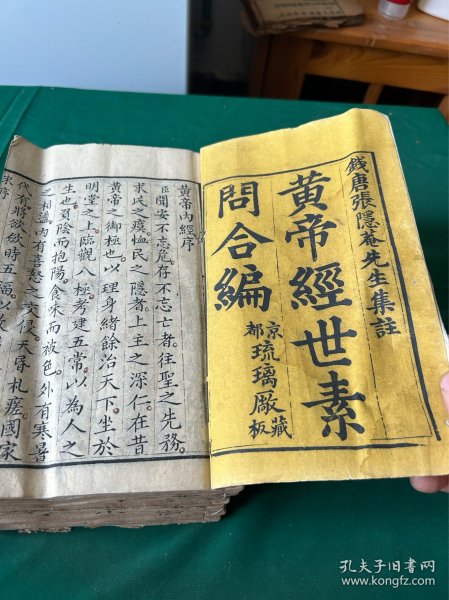 錢唐張隱菴先生集註
黄帝經世素
問合編
京都琉璃廠藏板
黃帝內經序
臣聞安不忘危存不忘亡者往聖之先務
求民之瘼恤民之隱者上主之深仁在昔
黃帝之御極也以理身緒餘治天下坐於
明堂之上臨觀八極考建五常以為人之
生也負陰而抱陽食味而被色外有寒暑
之相盪內有喜怒之交侵夭昏札瘥國家
代有將欲斂時五福以敷
孔夫子旧书网
www.kongfz.com